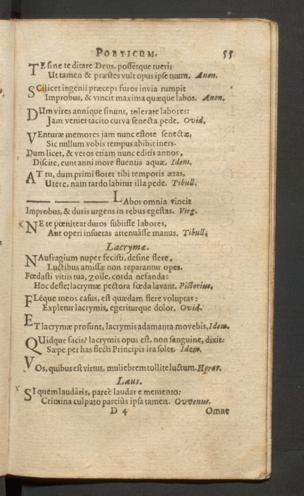 POETICUM. 55
TE sine te ditare Deus, possetque tueri:
Ut tamen & præstes vult opus ipse tuum. Anon.
SCilicet ingenii præceps furor invia rumpit
Improbus, & vincit maxima quæque labos. Anon.
DUm vires annique sinunt, tolerate labores:
Jam veniet tacito curva senecta pede. Ovid.
VEnturæ memores jam nunc estote senectæ,
Sic nullum vobis tempus abibit iners.
Dum licet, & veros etiam nunc editis annos,
Discite, eunt anni more fluentis aquæ. Idem.
AT tu, dum primi floret tibi temporis ætas,
Utere, nam tardo labitur illa pede. Tibull.
LAbor omnia vincit
Improbus, & duris urgens in rebus egestas. Virg.
NEte pœniteat duros subiisse labores,
Aut operi insuetas attenuasse manus. Tibull.
Lacrymæ.
NAufragium nuper fecisti, desine flere,
Luctibus amissæ non reparantur opes.
Fœdasti vitiis tua, zoile, corda nefanda:
Hoc deste; lacrymæ pectora fœda lavant. Pictorius.
FLeque meos casus, est quædam flere voluptas:
Expletur lacrymis, egeriturque dolor. Ovid.
ET lacrymæ prosunt, lacrymis adamanta movebis. Idem.
QUidque facis? lacrymis opus est, non sanguine, dixit:
Sæpe per has flecti Principis ira solet. Idem.
VOs, quibus est virtus, muliebrem tollite luctum. Horat.
Laus.
SI quem laudâris, parcè laudare memento:
Crimina culpato parcius ipsa tamen. Ovvenus.
D 4 Omne